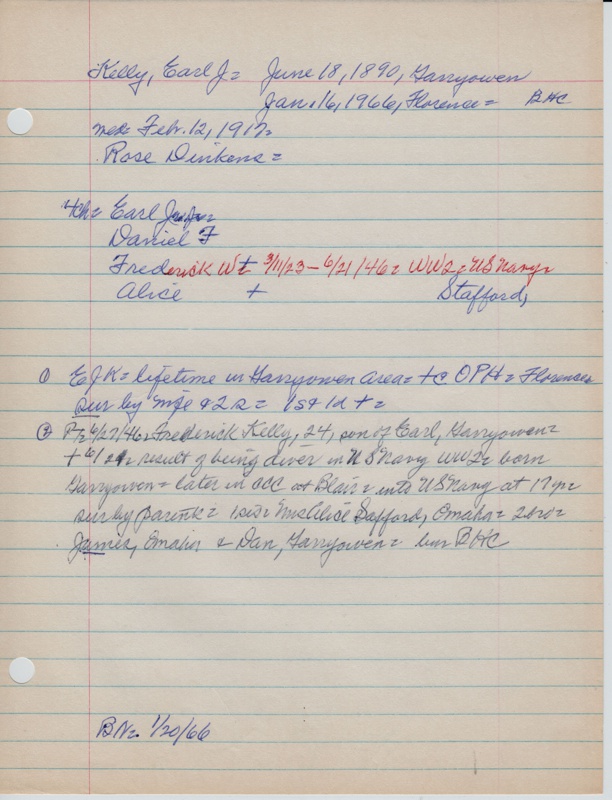 Kelly, Earl J = June 18, 1890, Garryowen
Jan. 16, 1966, Florence = BHC
med = Feb. 12, 1917 =
Rose Dinkens =
4ch = Earl
Daniel F
Frederick W = + 3/11/23 - 6/21/46 = WW2 = US Navy =
Alice + Stafford,
① EJK = lifetime in Garryowen area = + @ OPH = Florence
sur by wife & 2 s = 1 s + 1 d + =
② PT = 6/27/46 = Frederick Kelly, 24, son of Earl, Garryowen =
+ 6/21 = result of being diver in US Navy WW2 = born
Garryowen = later in CCC at Blair = into US Navy at 17 yr =
sur by parents = 1 sis = Mrs Alice Safford, Omaha = 2 bro =
James, Omaha & Dan, Garryowen = bur BHC
BN = 1/20/66